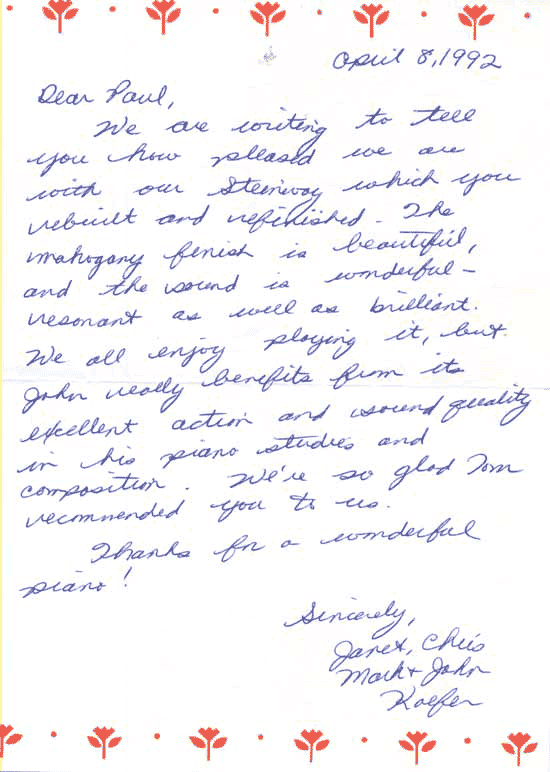 April 8, 1992
Dear Paul,
We are writing to tell
you how pleased we are
with our Steinway which you
rebuilt and refinished. The
mahogany finish is beautiful,
and the sound is wonderful -
resonant as well as brilliant.
We all enjoy playing it, but
John really benefits from its
excellent action and sound quality
in his piano studies and
composition. We're so glad Tom
recommended you to us.
Thanks for a wonderful
piano!
Sincerely,
Janet, Chris
Mark + John